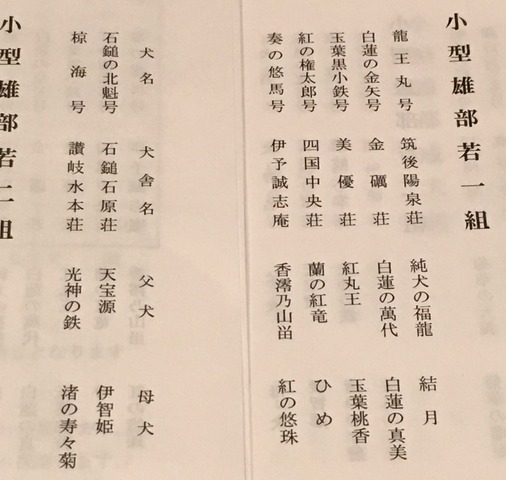 小型雄部若一組
龍王丸号 筑後陽泉荘 純犬の福龍 結月
白蓮の金矢号 金礪荘 白蓮の萬代 白蓮の真美
玉葉黒小鉄号 美優荘 紅丸王 玉葉桃香
紅の権太郎号 四国中央荘 蘭の紅竜 ひめ
奏の悠馬号 伊予誠志庵 香澪乃山 紅の悠珠
小型雄部若二組
犬名 犬舎名 父犬 母犬
石鎚の北魁号 石鎚石原荘 天宝源 伊智姫
椋海号 讃岐水本荘 光神の鉄 渚の寿々菊